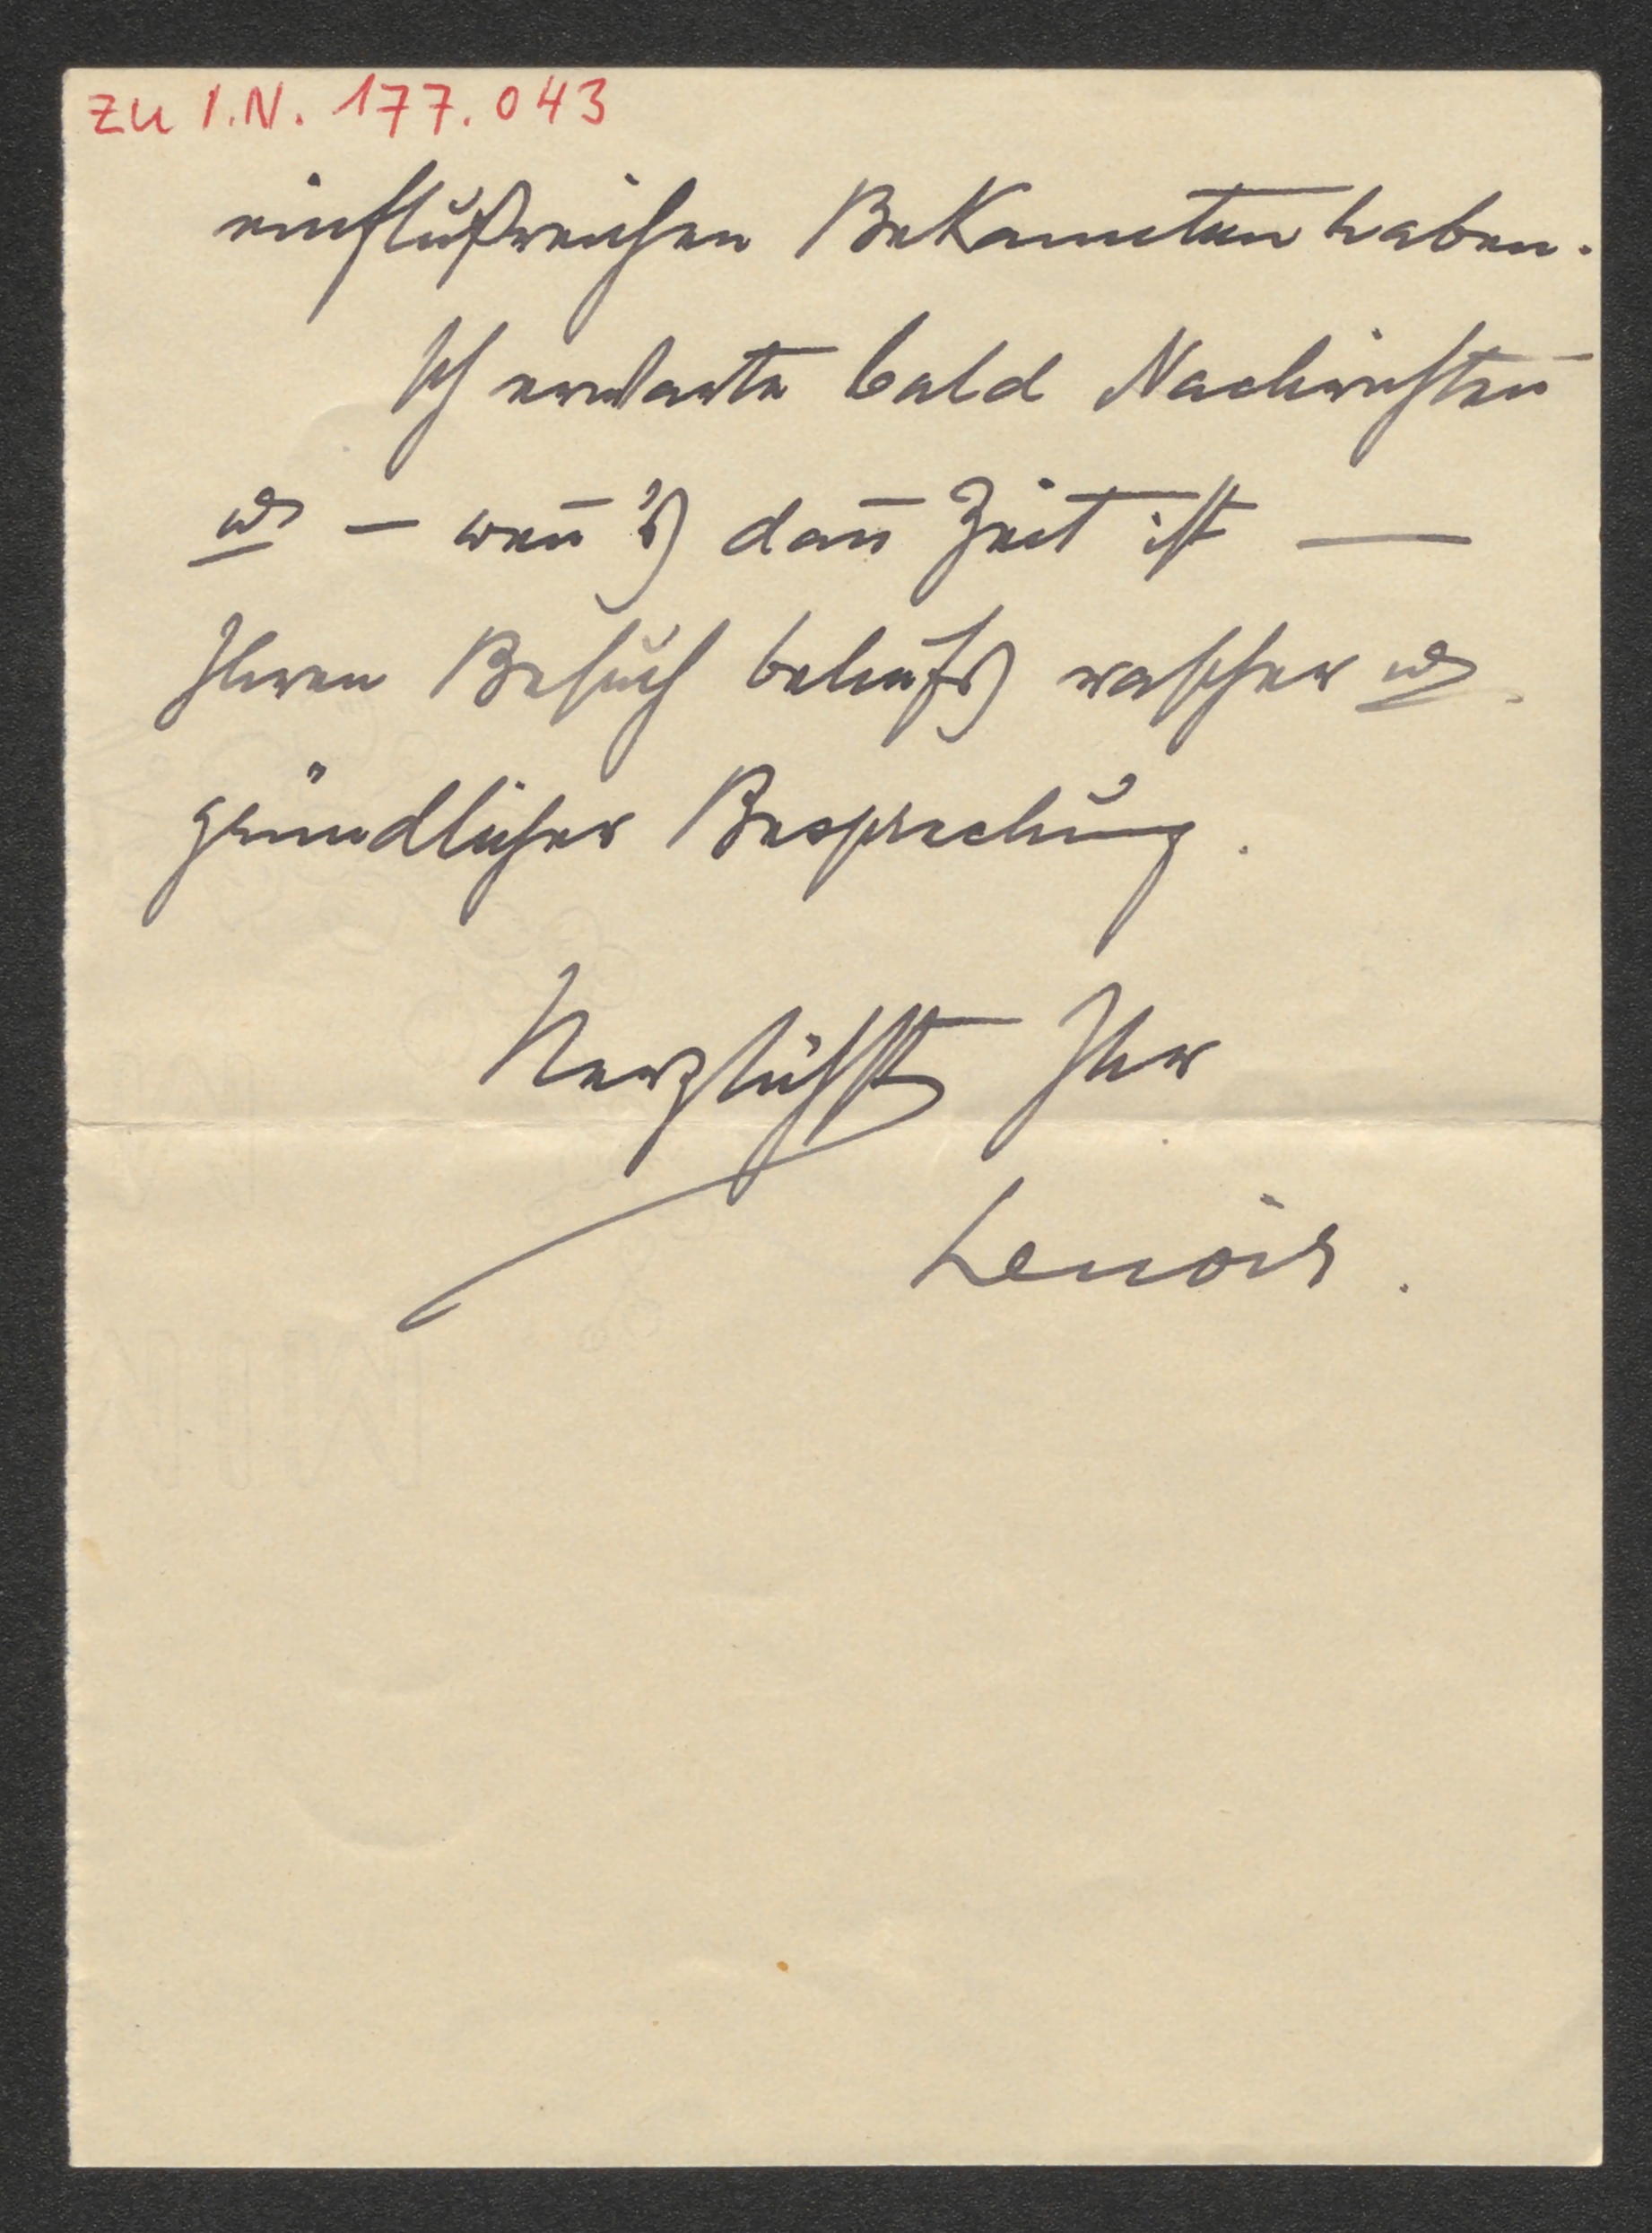 zu I.N. 177.043
einflußreichen Bekannten haben.
Ich erwarte bald Nachrichten
u – wen̄'s dan̄ Zeit ist —
Ihren Besuch behufs rascher u.
gründlicher Besprechung.
Herzlichst Ihr
Lenoir.